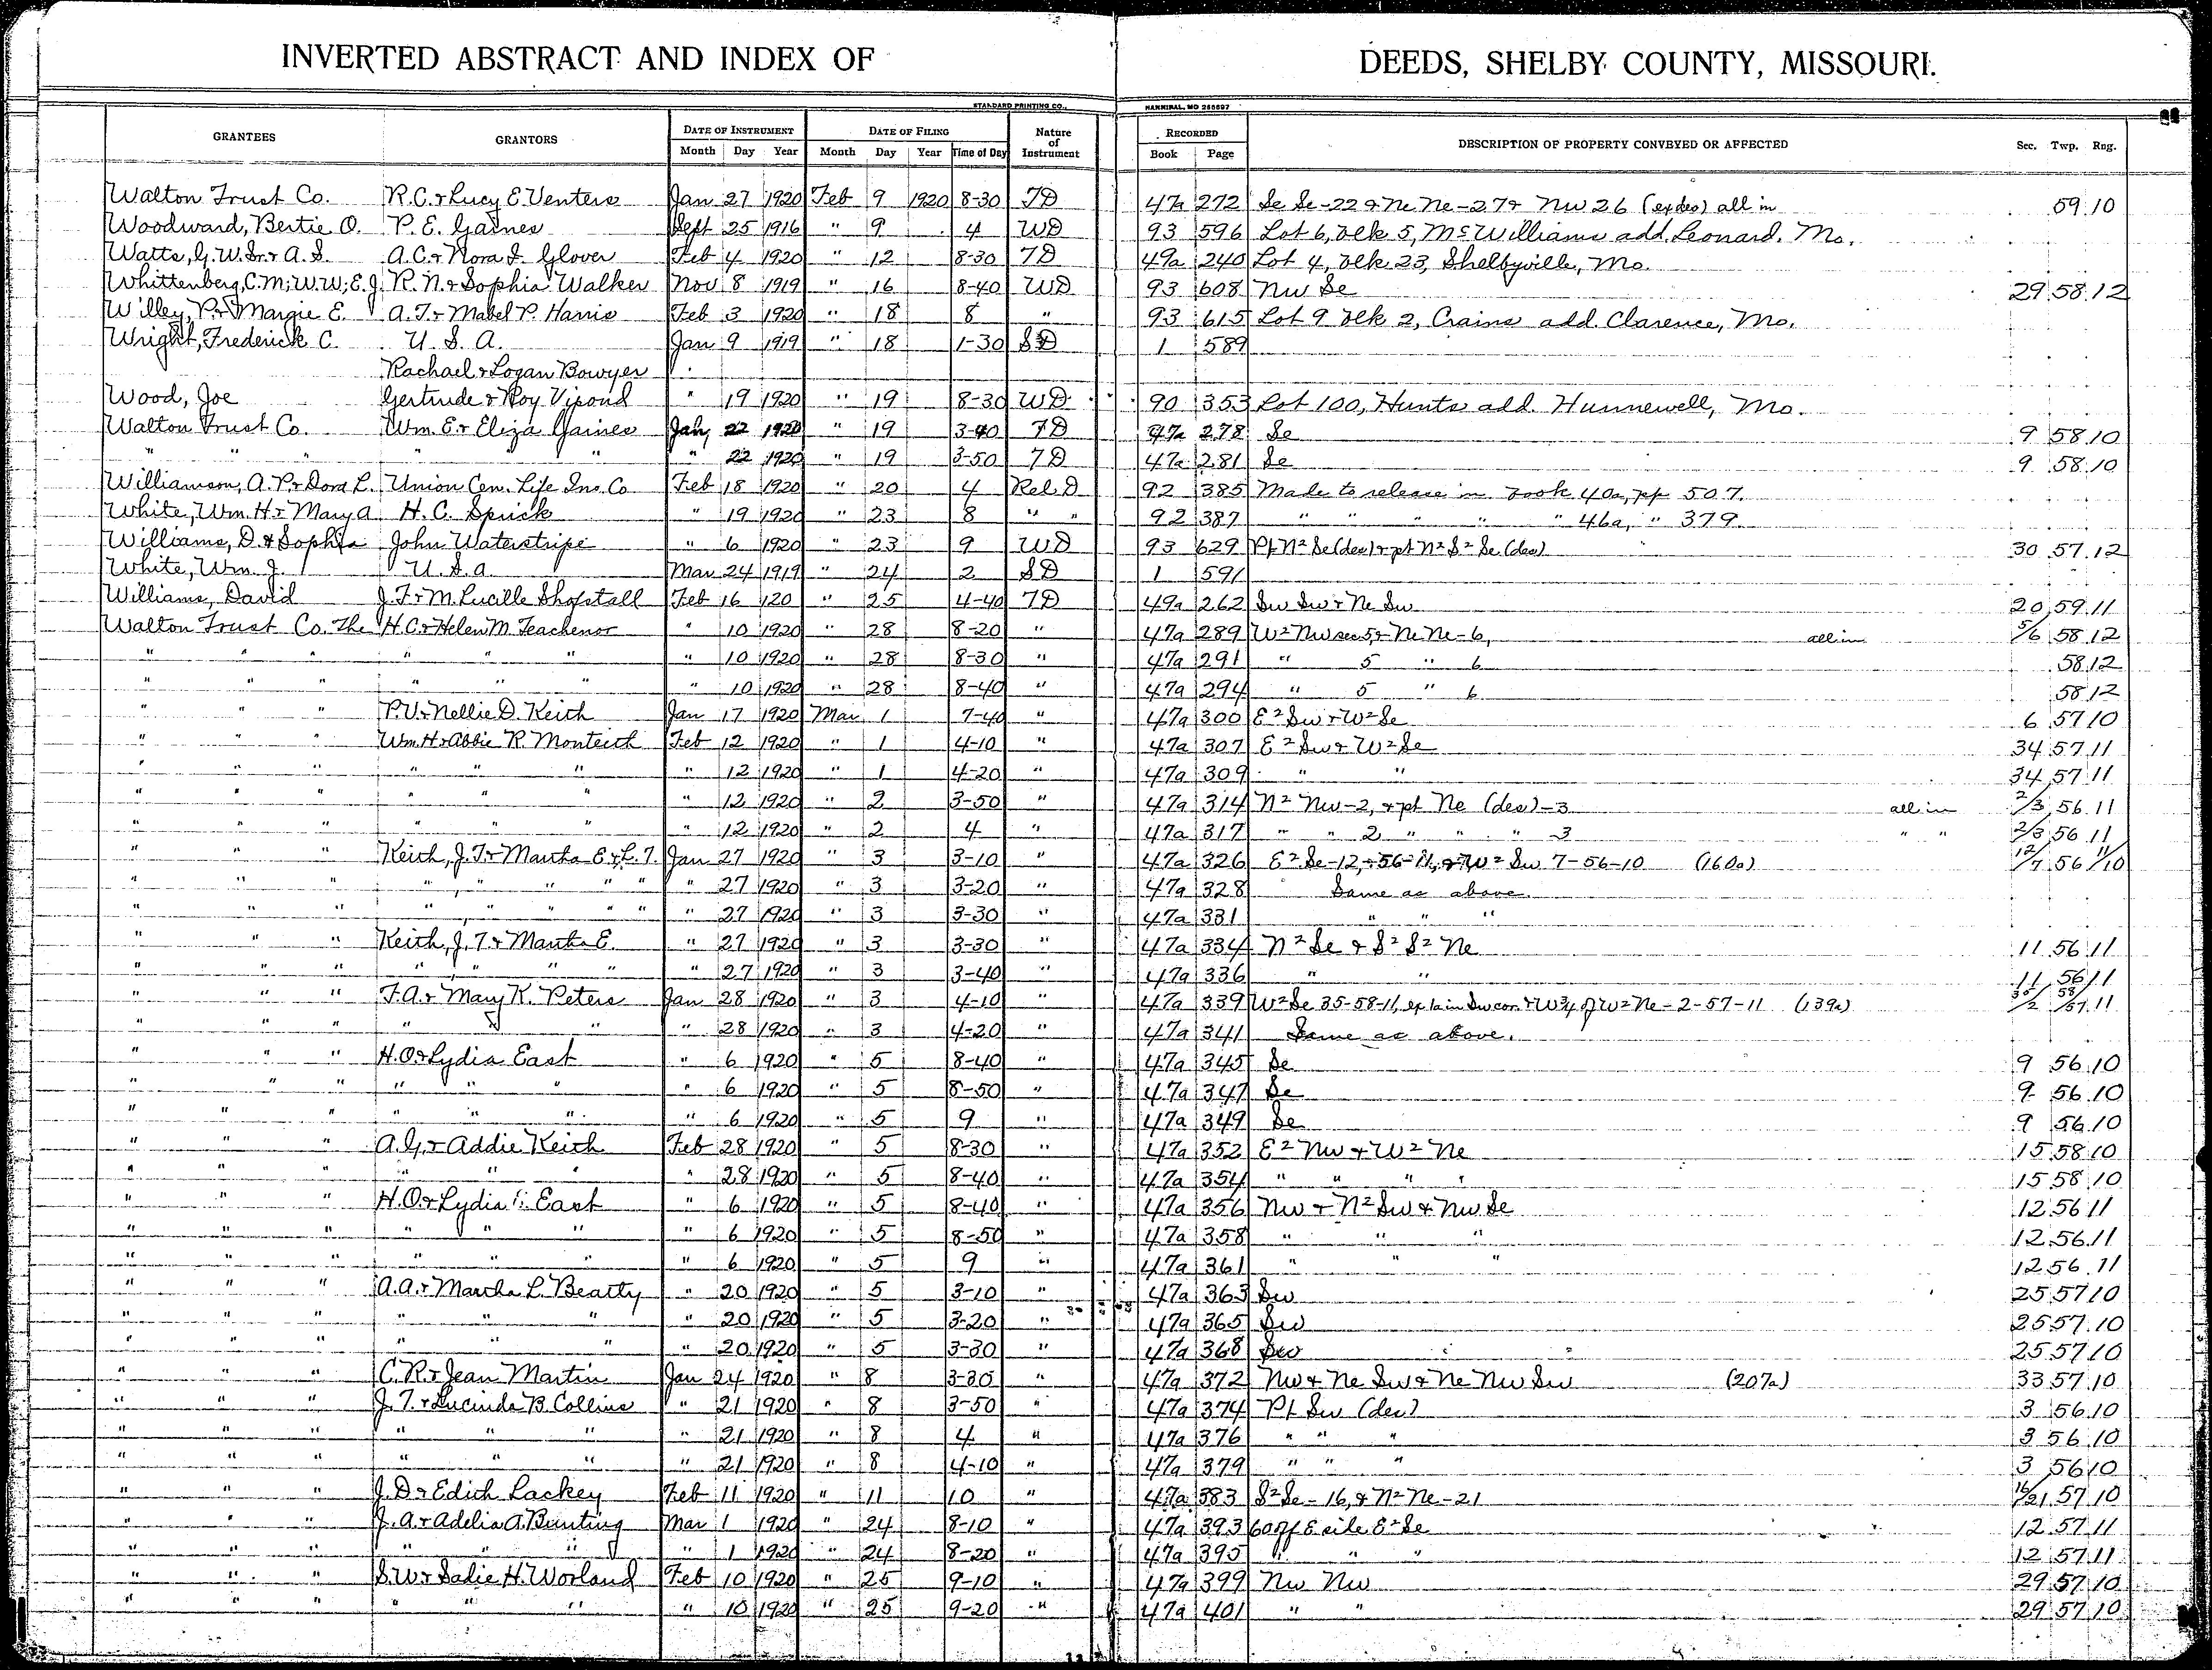 INVERTED ABSTRACT AND INDEX OF DEEDS, SHELBY COUNTY, MISSOURI.
STANDARD PRINTING CO., HANNIBAL, MO 268697
GRANTEES GRANTORS DATE OF INSTRUMENT DATE OF FILING Nature of Instrument RECORDED DESCRIPTION OF PROPERTY CONVEYED OR AFFECTED Sec. Twp. Rng.
Month Day Year Month Day Year Time of Day Book Page
Walton Trust Co. R.C. & Lucy E. Venters Jan 27 1920 Feb 9 1920 8-30 TD 47a 272 Se Se-22 & Ne Ne-27 & Nw 26 (ex des) all in 59 10
Woodward, Bertie O. P. E. Gaines Sept 25 1916 " 9 4 WD 93 596 Lot 6, Blk 5, McWilliams add. Leonard, Mo.
Watts, G.W. Sr. & A.S. A.C. & Nora I. Glover Feb 4 1920 " 12 8-30 TD 49a 240 Lot 4, Blk 23, Shelbyville, Mo.
Whittenberg, C.M; W.W; E.J. R. N. & Sophia Walker Nov 8 1919 " 16 8-40 WD 93 608 Nw Se 29 58 12
Willey, P. & Margie E. A. T. & Mabel P. Harris Feb 3 1920 " 18 8 " 93 615 Lot 9 Blk 2, Crains add. Clarence, Mo.
Wright, Frederick C. U. S. A. Jan 9 1919 " 18 1-30 SD 1 589
Rachael & Logan Bowyer
Wood, Joe Gertrude & Roy Vipond " 19 1920 " 19 8-30 WD 90 353 Lot 100, Hunts add. Hunnewell, Mo.
Walton Trust Co. Wm. E. & Eliza Gaines Jan 22 1920 " 19 3-40 TD 47a 278 Se 9 58 10
" " " " " " 22 1920 " 19 3-50 TD 47a 281 Se 9 58 10
Williamson, A. P. & Dora L. Union Cen. Life Ins. Co Feb 18 1920 " 20 4 Rel. D 92 385 Made to release in book 40a, pp 507.
White, Wm. H. & Mary A H. C. Spuick " 19 1920 " 23 8 " " 92 387 " " " " " 46a, " 379
Williams, D. & Sophia John Waterstripe " 6 1920 " 23 9 WD 93 629 Pt N² Se (des) & pt N² S² Se (des) 30 57 12
White, Wm. J. U. S. A. Mar 24 1919 " 24 2 SD 1 591
Williams, David J. F. & M. Lucille Shofstall Feb 16 120 " 25 4-40 TD 49a 262 Sw Sw & Ne Sw 20 59 11
Walton Trust Co. The H. C. & Helen M. Teachenor " 10 1920 " 28 8-20 " 47a 289 W² Nw sec 5 & Ne Ne-6, all in 5/6 58 12
" " " " " " " 10 1920 " 28 8-30 " 47a 291 " 5 " 6 58 12
" " " " " " " 10 1920 " 28 8-40 " 47a 294 " 5 " 6 58 12
" " " P. V. & Nellie D. Keith Jan 17 1920 Mar 1 7-40 " 47a 300 E² Sw & W² Se 6 57 10
" " " Wm. H. & Abbie R. Monteith Feb 12 1920 " 1 4-10 " 47a 307 E² Sw & W² Se 34 57 11
" " " " " " " 12 1920 " 1 4-20 " 47a 309 " " 34 57 11
" " " " " " " 12 1920 " 2 3-50 " 47a 314 N² Nw-2, & pt Ne (des)-3 all in 2/3 56 11
" " " " " " " 12 1920 " 2 4 " 47a 317 " " 2 " " " 3 " " 2/3 56 11
" " " Keith, J. T. & Martha E. & L. T. Jan 27 1920 " 3 3-10 " 47a 326 E² Se-12-56-11, & W² Sw 7-56-10 (160a) 12/7 56 11/10
" " " " " " " " " 27 1920 " 3 3-20 " 47a 328 Same as above.
" " " " " " " " " 27 1920 " 3 3-30 " 47a 331 " " "
" " " Keith, J. T. & Martha E. " 27 1920 " 3 3-30 " 47a 334 N² Se & S² S² Ne 11 56 11
" " " " " " " " 27 1920 " 3 3-40 " 47a 336 " " 11 56 11
" " " F. A. & Mary K. Peters Jan 28 1920 " 3 4-10 " 47a 339 W² Se 35-58-11, ex 1a in Sw cor. & W¾ of W² Ne-2-57-11 (139a) 35/2 58/57 11
" " " " " " 28 1920 " 3 4-20 " 47a 341 Same as above.
" " " H. O. & Lydia East " 6 1920 " 5 8-40 " 47a 345 Se 9 56 10
" " " " " " " 6 1920 " 5 8-50 " 47a 347 Se 9 56 10
" " " " " " " 6 1920 " 5 9 " 47a 349 Se 9 56 10
" " " A. G. & Addie Keith Feb 28 1920 " 5 8-30 " 47a 352 E² Nw & W² Ne 15 58 10
" " " " " " " 28 1920 " 5 8-40 " 47a 354 " " " " 15 58 10
" " " H. O. & Lydia East " 6 1920 " 5 8-40 " 47a 356 Nw & N² Sw & Nw Se 12 56 11
" " " " " " " 6 1920 " 5 8-50 " 47a 358 " " " 12 56 11
" " " " " " " 6 1920 " 5 9 " 47a 361 " " " 12 56 11
" " " A. A. & Martha L. Beatty " 20 1920 " 5 3-10 " 47a 363 Sw 25 57 10
" " " " " " " 20 1920 " 5 3-20 " 47a 365 Sw 25 57 10
" " " " " " " 20 1920 " 5 3-30 " 47a 368 Sw 25 57 10
" " " C. R. & Jean Martin Jan 24 1920 " 8 3-30 " 47a 372 Nw & Ne Sw & Ne Nw Sw (207a) 33 57 10
" " " J. T. & Lucinda B. Collins " 21 1920 " 8 3-50 " 47a 374 Pt Sw (des) 3 56 10
" " " " " " " 21 1920 " 8 4 " 47a 376 " " " 3 56 10
" " " " " " " 21 1920 " 8 4-10 " 47a 379 " " " 3 56 10
" " " J. D. & Edith Lackey Feb 11 1920 " 11 10 " 47a 383 S² Se-16, & N² Ne-21 16/21 57 10
" " " J. A. & Adelia A. Bunting Mar 1 1920 " 24 8-10 " 47a 393 60a of E side E² Se 12 57 11
" " " " " " " 1 1920 " 24 8-20 " 47a 395 " " " 12 57 11
" " " S. W. & Sadie H. Worland Feb 10 1920 " 25 9-10 " 47a 399 Nw Nw 29 57 10
" " " " " " " 10 1920 " 25 9-20 " 47a 401 " " 29 57 10